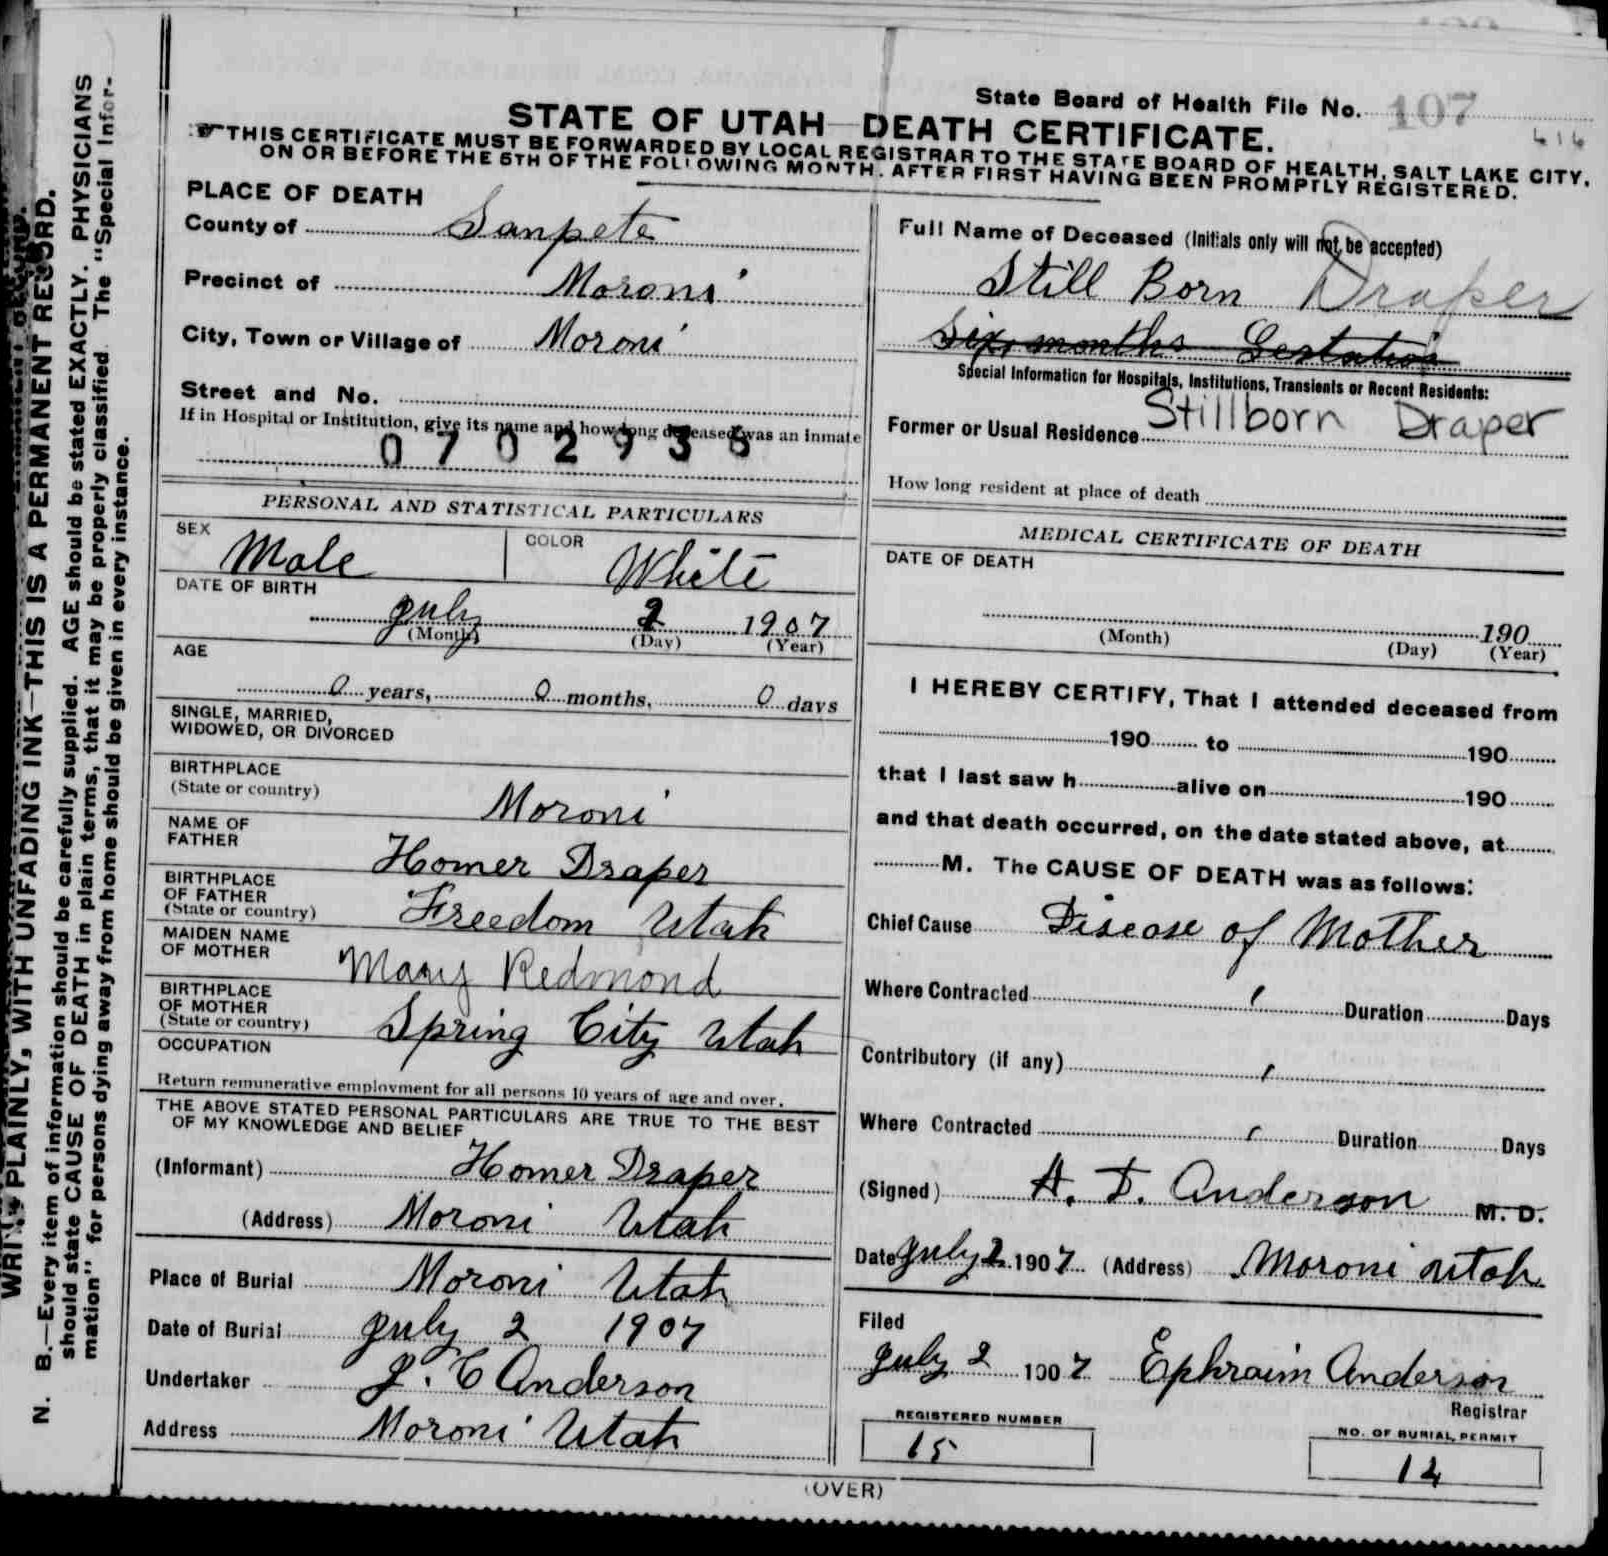 State Board of Health File No. 107
416
STATE OF UTAH—DEATH CERTIFICATE.
THIS CERTIFICATE MUST BE FORWARDED BY LOCAL REGISTRAR TO THE STATE BOARD OF HEALTH, SALT LAKE CITY,
ON OR BEFORE THE 5TH OF THE FOLLOWING MONTH, AFTER FIRST HAVING BEEN PROMPTLY REGISTERED.
PLACE OF DEATH
County of Sanpete
Precinct of Moroni
City, Town or Village of Moroni
Street and No.
If in Hospital or Institution, give its name and how long deceased was an inmate
0702936
PERSONAL AND STATISTICAL PARTICULARS
SEX Male COLOR White
DATE OF BIRTH
July 2 1907
(Month) (Day) (Year)
AGE
0 years, 0 months, 0 days
SINGLE, MARRIED,
WIDOWED, OR DIVORCED
BIRTHPLACE
(State or country) Moroni
NAME OF
FATHER Homer Draper
BIRTHPLACE
OF FATHER
(State or country) Freedom Utah
MAIDEN NAME
OF MOTHER Mary Redmond
BIRTHPLACE
OF MOTHER
(State or country) Spring City Utah
OCCUPATION
Return remunerative employment for all persons 10 years of age and over.
THE ABOVE STATED PERSONAL PARTICULARS ARE TRUE TO THE BEST
OF MY KNOWLEDGE AND BELIEF
(Informant) Homer Draper
(Address) Moroni Utah
Place of Burial Moroni Utah
Date of Burial July 2 1907
Undertaker J. C Anderson
Address Moroni Utah
Full Name of Deceased (Initials only will not be accepted)
Still Born Draper
Six months Gestation
Special Information for Hospitals, Institutions, Transients or Recent Residents:
Former or Usual Residence Stillborn Draper
How long resident at place of death
MEDICAL CERTIFICATE OF DEATH
DATE OF DEATH
190
(Month) (Day) (Year)
I HEREBY CERTIFY, That I attended deceased from
190 to 190
that I last saw h alive on 190
and that death occurred, on the date stated above, at
M. The CAUSE OF DEATH was as follows:
Chief Cause Disease of Mother
Where Contracted Duration Days
Contributory (if any)
Where Contracted Duration Days
(Signed) A. D. Anderson M. D.
Date July 2 1907 (Address) Moroni Utah
Filed
July 2 1907 Ephraim Anderson
Registrar
REGISTERED NUMBER
15
NO. OF BURIAL PERMIT
12
(OVER)
PLAINLY, WITH UNFADING INK—THIS IS A PERMANENT RECORD.
N. B.—Every item of information should be carefully supplied. AGE should be stated EXACTLY. PHYSICIANS
should state CAUSE OF DEATH in plain terms, that it may be properly classified. The "Special Infor-
mation" for persons dying away from home should be given in every instance.